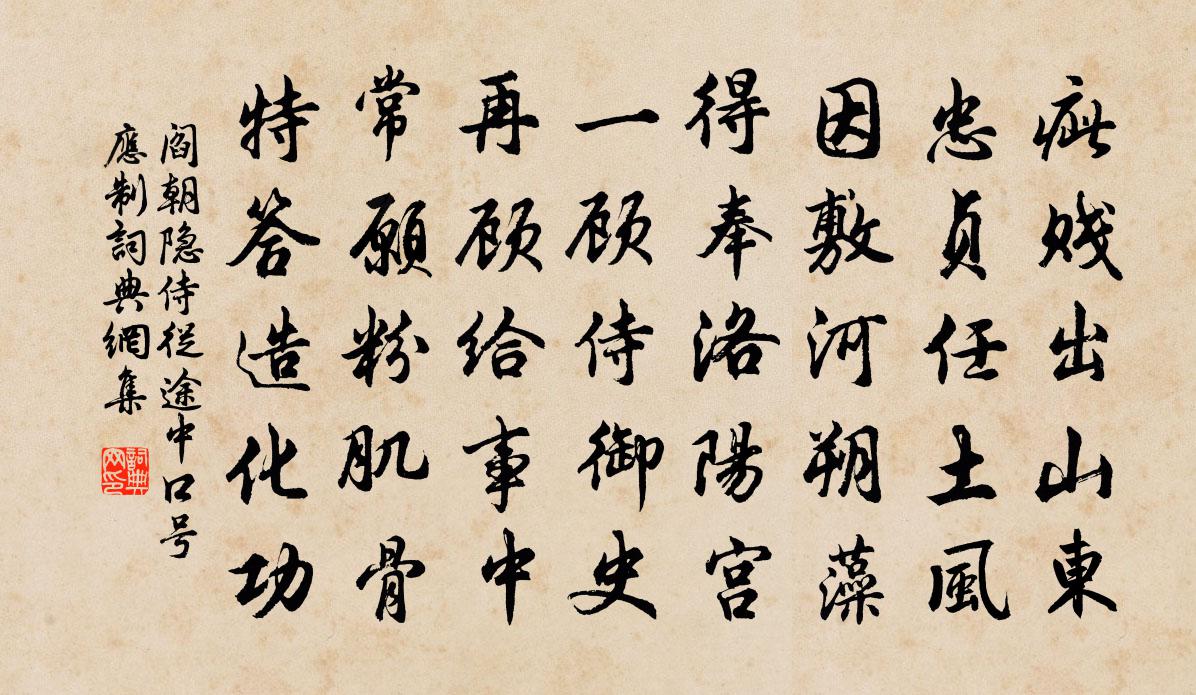 疵贱出山東
忠贞任土風
因敷河朔藻
得奉洛陽宫
一顾侍御史
再顾给事中
常願粉肌骨
特答造化功
阎朝隐侍從途中口号
應制詞典網集
詞典
网印